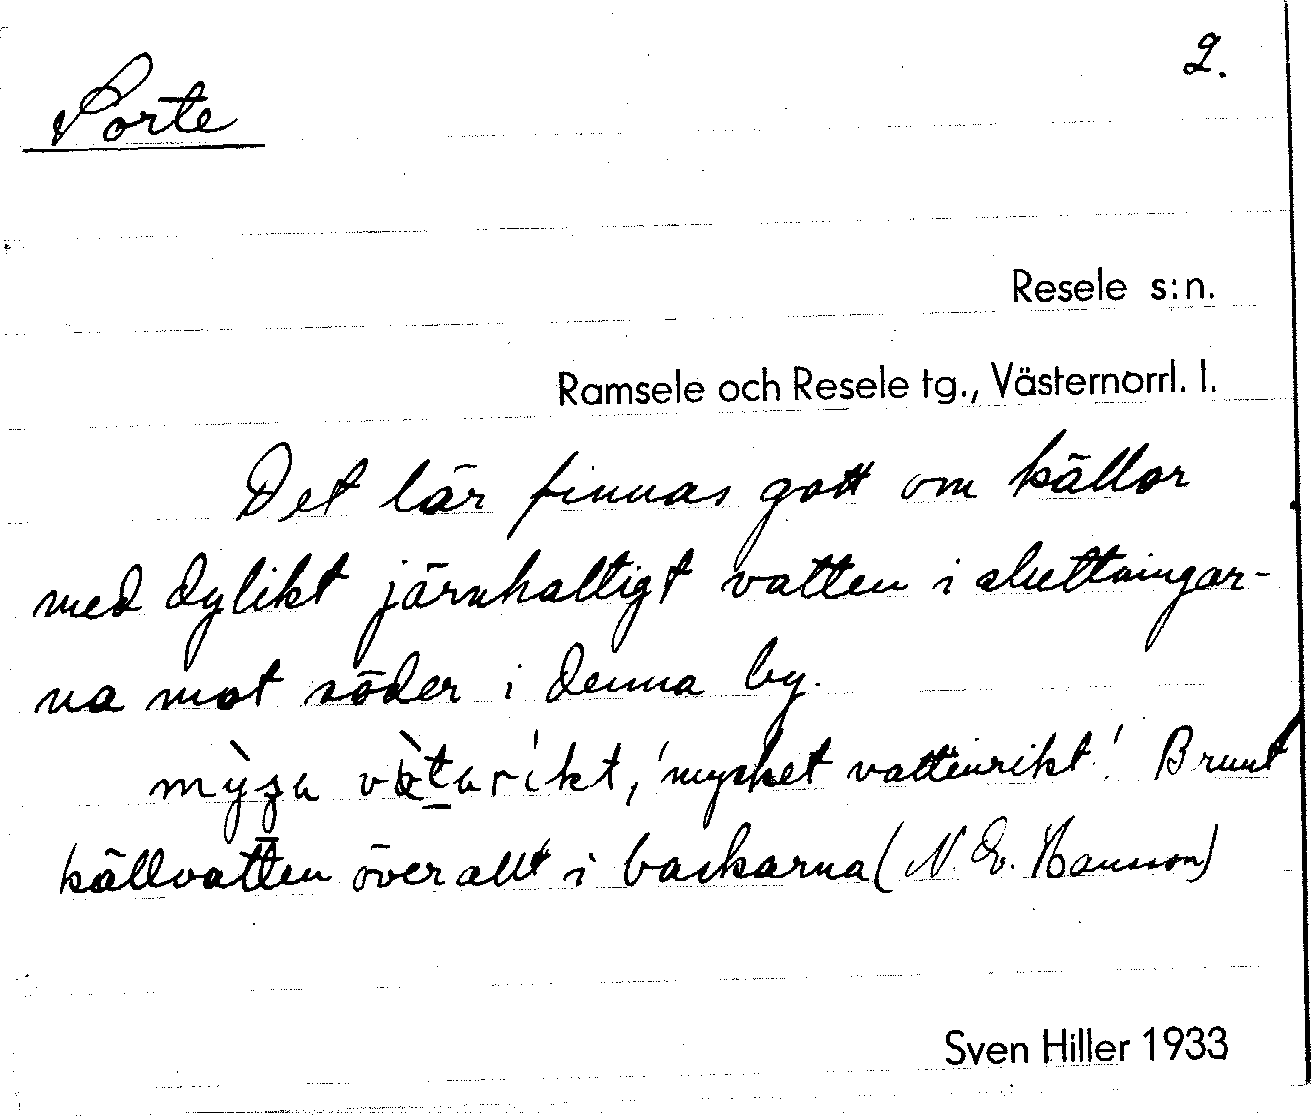 2.
Porte
Resele s:n.
Ramsele och Resele tg., Västernorrl. l.
Det lär finnas gott om källor
med dylikt järnhaltigt vatten i sluttningar-
na mot söder i denna by.
rikt, 'mycket vattenrikt'. Brunt
källvatten överallt i backarna (N. E. Hansson)
Sven Hiller 1933